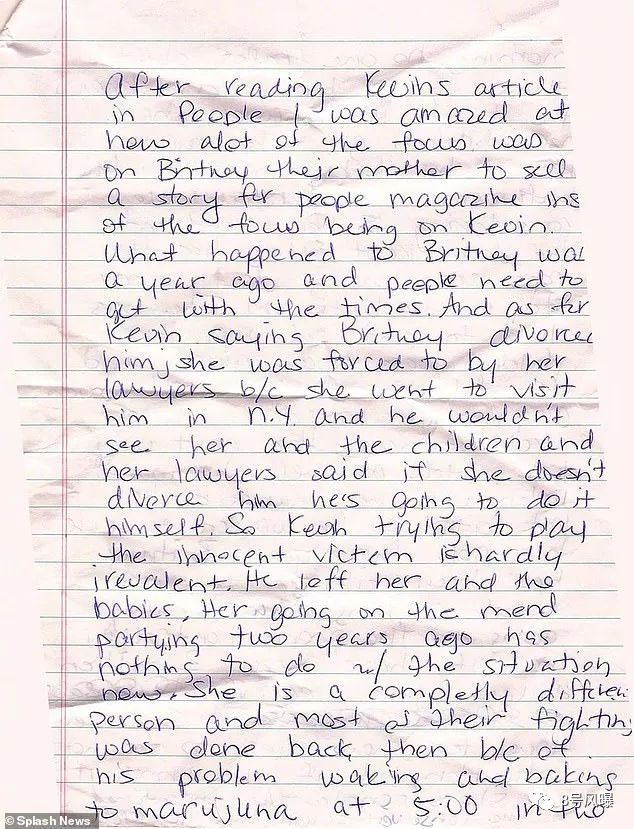 After reading Kevins article
in People I was amazed at
how alot of the focus was
on Britney their mother to sell
a story for people magazine ins
of the focus being on Kevin.
What happened to Britney was
a year ago and people need to
get with the times. And as for
Kevin saying Britney divorced
him, she was forced to by her
lawyers b/c she went to visit
him in N.Y. and he wouldn't
see her and the children and
her lawyers said if she doesn't
divorce him he's going to do it
himself. So Kevin trying to play
the innocent victem is hardly
irevalent. He left her and the
babies. Her going on the mend
partying two years ago has
nothing to do w/ the situation
now. She is a completly differen
person and most of their fighting
was done back then b/c of
his problem waking and baking
to marujuna at 5:00 in the
© Splash News
8号风曝